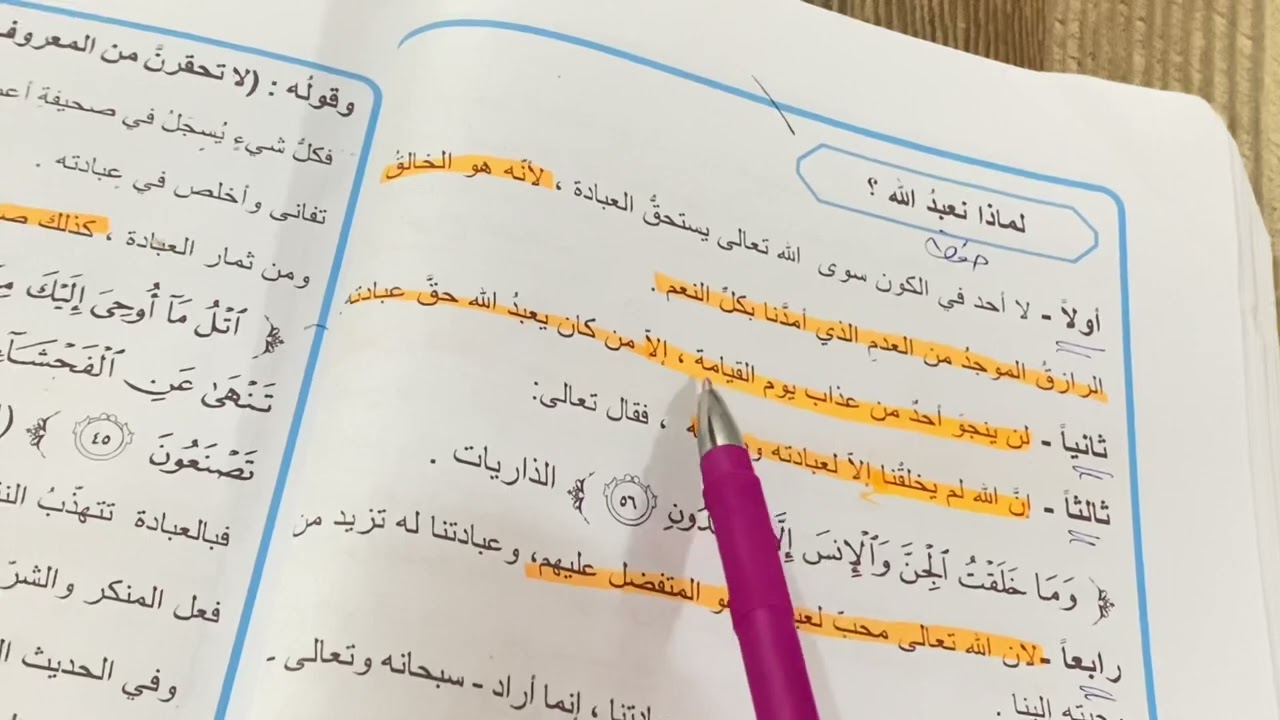 لماذا نعبدُ الله ؟
أولاً - لا أحد في الكون سوى الله تعالى يستحقُّ العبادة ، لأنّه هو الخالقُ
الرازقُ الموجدُ من العدمِ الذي أمدَّنا بكلِّ النعم .
ثانياً - لن ينجوَ أحدٌ من عذاب يوم القيامة ، إلاّ من كان يعبدُ الله حقَّ عبادته
ثالثاً - إنَّ الله لم يخلقْنا إلاّ لعبادته ، فقال تعالى:
﴿ وَمَا خَلَقْتُ ٱلْجِنَّ وَٱلْإِنسَ ٥٦ ﴾ الذاريات .
رابعاً - لان الله تعالى محبّ المتفضل عليهم، وعبادتنا له تزيد من
الينا .
، إنما أراد - سبحانه وتعالى -
وقولُه : (لا تحقرنَّ من المعروف
فكلُّ شيءٍ يُسجَلُ في صحيفةِ
تفانى وأخلص في عبادته .
ومن ثمار العبادة ، كذلك
﴿ ٱتْلُ مَآ أُوحِىَ إِلَيْكَ
تَنْهَىٰ عَنِ ٱلْفَحْشَآءِ
تَصْنَعُونَ ٤٥ ﴾
فبالعبادة تتهذّبُ
فعل المنكر والشرّ
وفي الحديث